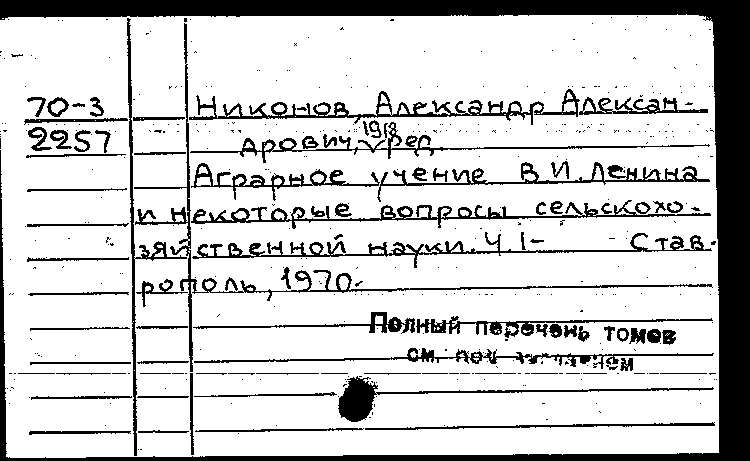 70-3 Никонов, Александр Алексан-
2257 дрович, 1918 ред.
Аграрное учение В.И. Ленина
и некоторые вопросы сельскохо-
зяйственной науки. Ч. 1- Став-
рополь, 1970.
Полный перечень томов
см. под